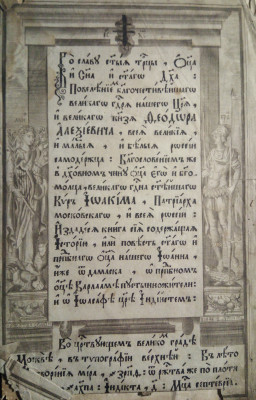 Во славу ст҃ыѧ трⷪ҇цы, Ѻц҃а
и Сн҃а и ст҃агѡ Дх҃а:
Повелѣнїемъ бл҃гочестивѣйшагѡ
великагѡ гдⷭ҇рѧ нашегѡ Цр҃ѧ,
и великагѡ кнѧзѧ Ѳеодѡра
Алеѯїевича, всеѧ великїѧ,
и малыѧ, и бѣлыѧ рѡссїи
самодержца: Бл҃гословенїемъ же
въ дх҃овномъ чинѣ ѻц҃а егѡ и бг҃о
мольца, великагѡ гдⷭ҇на ст҃ѣйшагѡ
Кѵръ Їѡакїма, Патрїарха
московскагѡ, и всеѧ рѡссїи:
Издадесѧ книга сїѧ содержащаѧ
Їсторїю, или повѣсть ст҃агѡ и
прпⷣбнагѡ ѻц҃а нашегѡ Їѡанна,
иже ѿ дамаска, ѡ прпⷣбномъ
ѻц҃ѣ Варлаамѣ пꙋстынножители:
и ѡ Їѡасафѣ цр҃ѣ Їндїйстемъ:
Во црⷭ҇твꙋющемъ великомъ градѣ
Москвѣ, въ тѵпографїи верхней: Въ лѣто
ѿ сотворенїѧ мїра, ҂зр҃ѿ: ѿ ржⷭ҇тва же по плоти
҂ах҃па: Їндїкта, д: Мцⷭ҇а септеврїа,